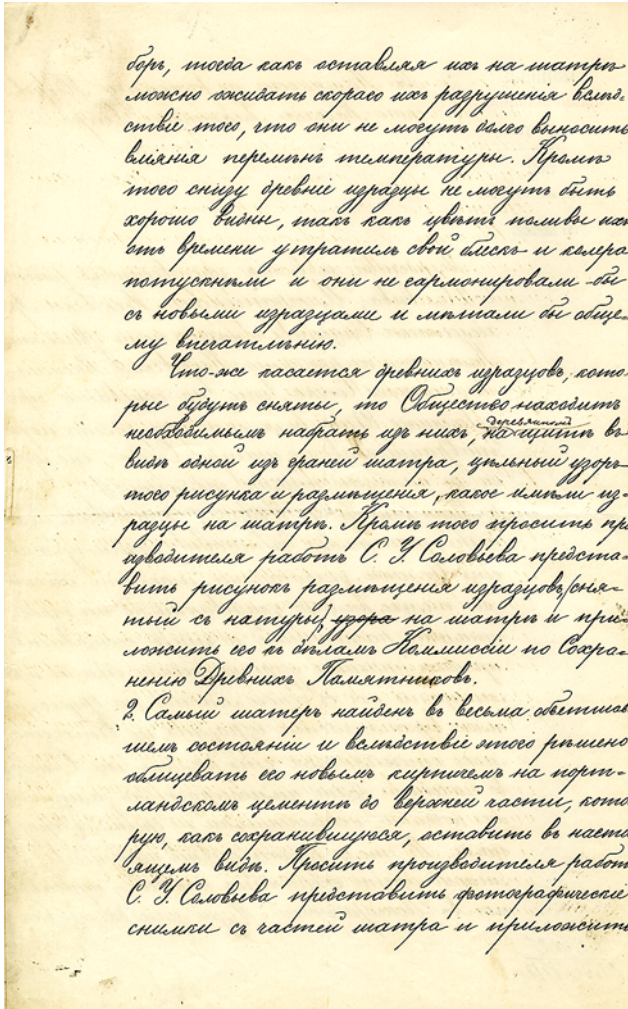 боръ, тогда какъ оставляя ихъ на шатрѣ
можно ожидать скораго ихъ разрушенія вслѣд-
ствіе того, что они не могутъ долго выносить
вліянія перемѣнъ температуры. Кромѣ
того снизу древніе изразцы не могутъ быть
хорошо видны, такъ какъ цвѣтъ поливы ихъ
отъ времени утратилъ свой блескъ и колера
потускнѣли и они не гармонировали-бы
съ новыми изразцами и мѣшали бы обще-
му впечатлѣнію.
Что-же касается древнихъ изразцовъ, кото-
рые будутъ сняты, то Общество находитъ
необходимымъ набрать изъ нихъ, на деревянный щитъ въ
видѣ одной изъ граней шатра, цѣльный узоръ
того рисунка и размѣщенія, какое имѣли из-
разцы на шатрѣ. Кромѣ того просить про
изводителя работъ С. У. Соловьева предста-
вить рисунокъ размѣщенія изразцовъ (сня-
тый съ натуры) узора на шатрѣ и при-
ложить его къ дѣламъ Коммиссіи по Сохра-
ненію Древнихъ Памятниковъ.
2. Самый шатеръ найденъ въ весьма обветшав
шемъ состояніи и вслѣдствіе этого рѣшено
облицевать его новымъ кирпичемъ на порт-
ландскомъ цементѣ до верхней части, кото
рую, какъ сохранившуюся, оставить въ насто
ящемъ видѣ. Просить производителя работъ
С. У. Соловьева представить фотографическіе
снимки съ частей шатра и приложить